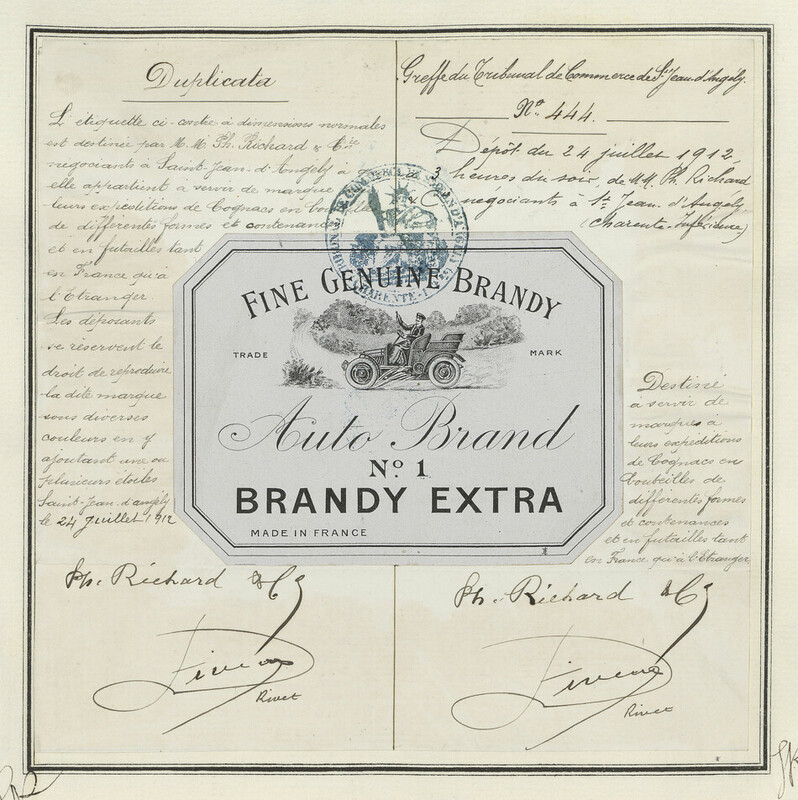 Duplicata
L'étiquette ci-contre à dimensions normales
est destinée par M.M. Ph. Richard & Cie
négociants à Saint-Jean-d'Angély à
elle appartient à servir de marque
leurs expéditions de Cognacs en
de différentes formes et contenance
et en futailles tant
en France qu'à
l'Etranger.
Les déposants
se réservent le
droit de reproduire
la dite marque
sous diverses
couleurs en y
ajoutant une ou
plusieurs étoiles
Saint-Jean-d'angely
le 24 Juillet 1912
Ph. Richard & Co
Rivet
Greffe du Tribunal de Commerce de St Jean d'Angély.
No. 444.
Dépôt du 24 juillet 1912,
3 heures du soir, de MM. Ph. Richard
négociants à St Jean d'Angely
(Charente-Inférieure)
FINE GENUINE BRANDY
TRADE MARK
Auto Brand
No 1
BRANDY EXTRA
MADE IN FRANCE
Destiné
à servir de
marques à
leurs expéditions
de Cognacs en
bouteilles de
différentes formes
et contenances
et en futailles tant
en France qu'à l'Etranger
Ph. Richard & Co
Rivet